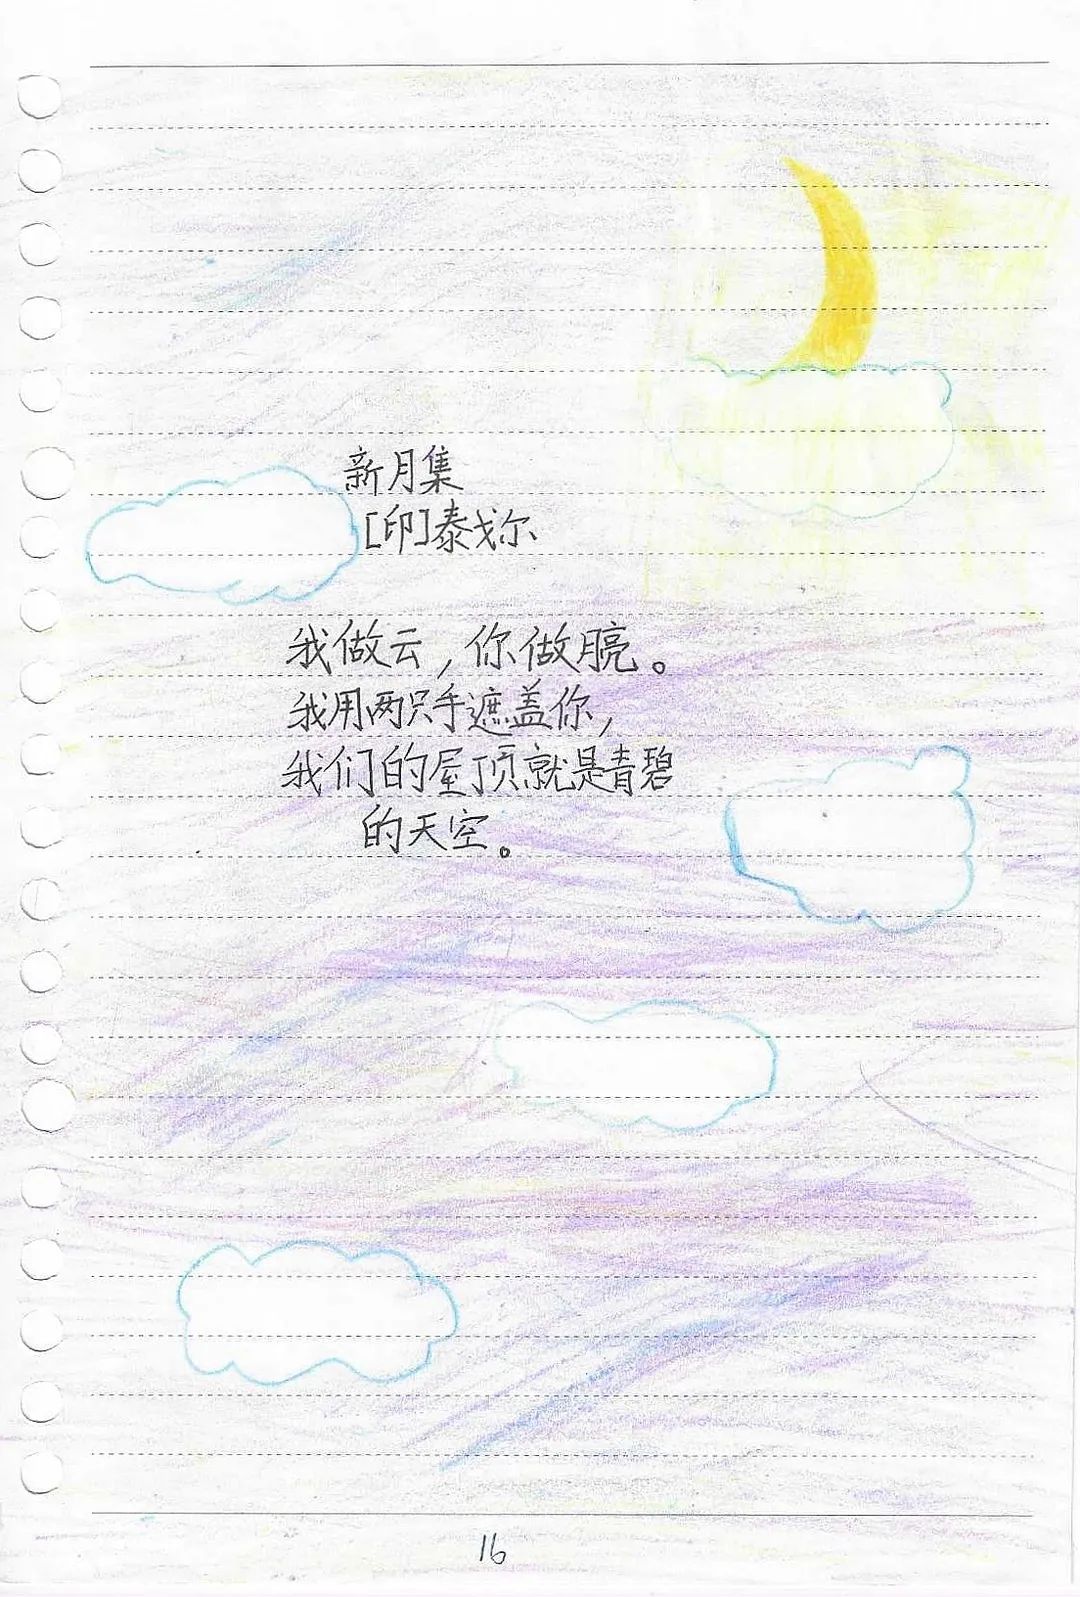 新月集
[印]泰戈尔
我做云，你做月亮。
我用两只手遮盖你，
我们的屋顶就是青碧
的天空。
16